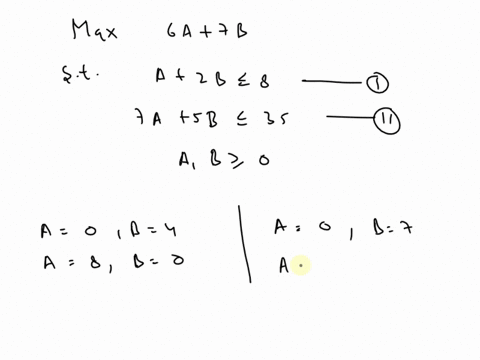 Max 6A + 7B
S.t. A + 2B ≤ 8 —— I
7A + 5B ≤ 35 —— II
A, B ≥ 0
A = 0, B = 4
A = 8, B = 0
A = 0, B = 7
A